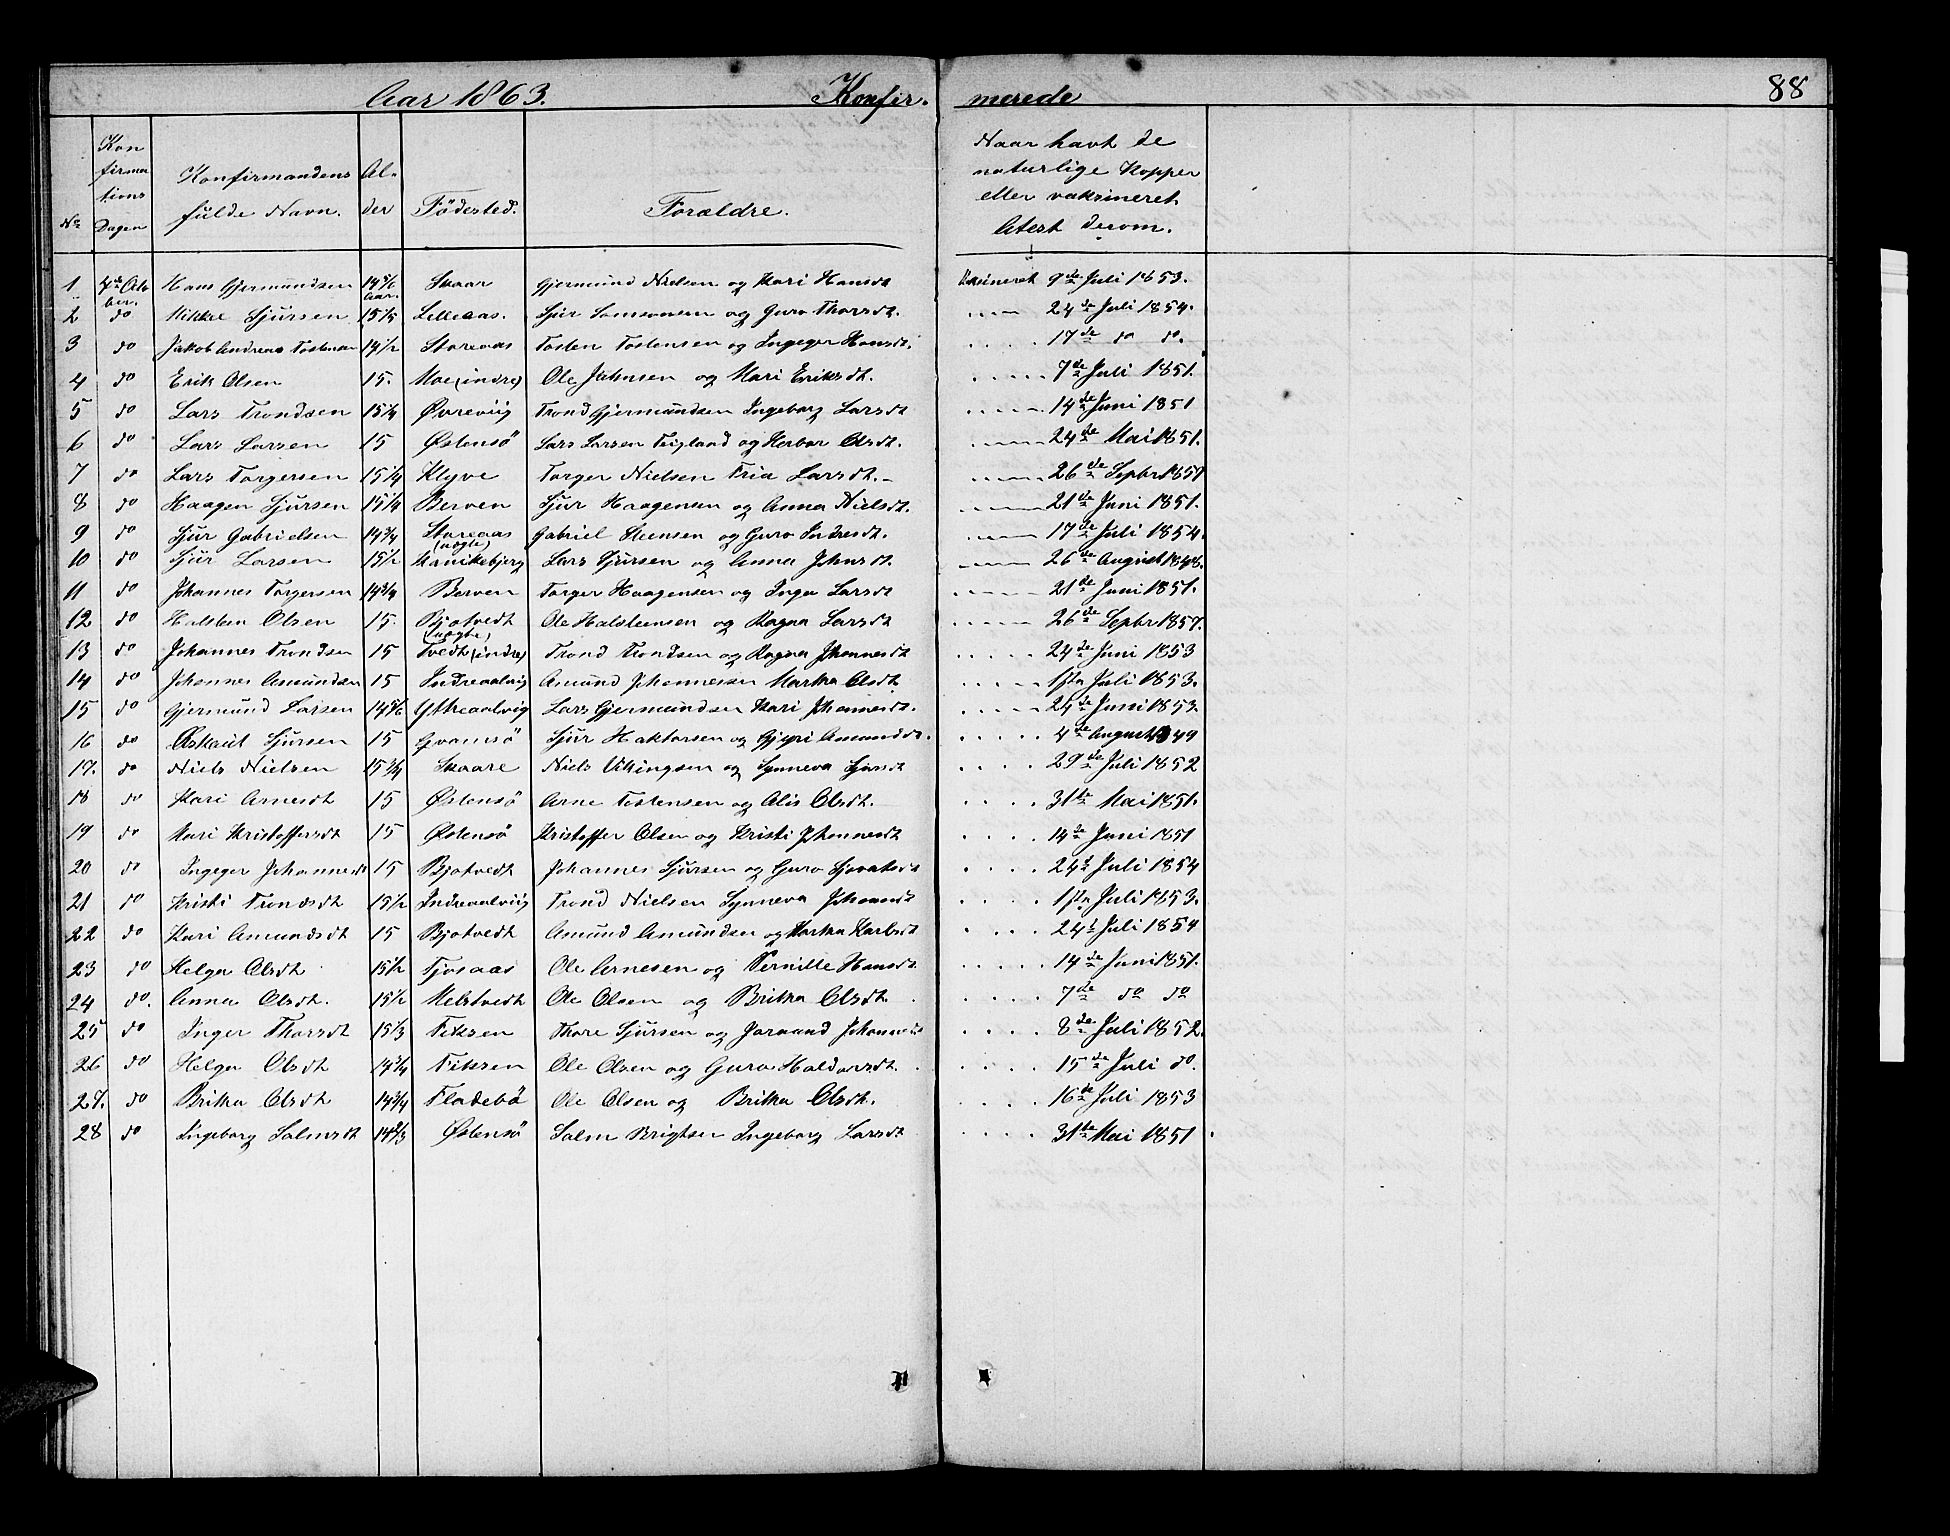 Aar 1863. Konfir. merede 88
No Kon firma tions Dagen Konfirmandens fulde Navn. Al- der Fødested. Forældre. Naar havt de naturlige Kopper eller vaksineret Atest derom.
1 4de Octo ber. Hans Gjermundsen 14 5/6 Aar. Skaar Gjermund Nielsen og Kari Hansdt Vaksineret 9de Juli 1853.
2 do Mikkel Sjursen 15 1/4 Lilleaas. Sjur Samsonsen og Guro Thorsdt. 24de Juli 1854.
3 do Jakob Andreas Tostensen 14 1/2 Storeaas Tosten Tostensen og Ingeger Hansdt. 17de do do.
4 do Erik Olsen 15. Moe (indre) Ole Johnsen og Mari Eriksdt. 7de Juli 1851.
5 do Lars Trondsen 15 1/4 Øvreviig Trond Gjermundsen Ingeborg Larsdt 14de Juni 1851
6 do Lars Larsen 15 Østensö Lars Larsen Teigland og Herbor Olsdt. 24de Mai 1851.
7 do Lars Torgersen 15 1/4 Klyve Torger Nielsen Tria Larsdt. 26de Septbr 1857
8 do Haagen Sjursen 15 1/4 Berven Sjur Haagensen og Anna Nielsdt. 21de Juni 1851.
9 do Sjur Gabrielsen 14 3/4 Storeaas Gabriel Steensen og Guro Indresdt. 17de Juli 1854.
10 do Sjur Larsen 15 1/2 (nögte) Skeniksbjerg Lars Sjursen og Anna Johnsdt. 26de August 1848.
11 do Johannes Torgersen 14 3/4 Berven Torger Haagensen og Inga Larsdt 21de Juni 1851.
12 do Halsten Olsen 15. Bjotvedt Ole Halsteensen og Ragna Larsdt 26de Septbr 1857.
13 do Johannes Trondsen 15 (nögte) Tvedt (indre) Trond Trondsen og Ragna Johannesdt 24de Juni 1853
14 do Johannes Amundsen 15 Indreaalvig Amund Johannessen Martha Olsdt 1ste Juli 1853.
15 do Gjermund Larsen 14 5/6 Ytreaalvig Lars Gjermundsen Kari Johannesdt. 24de Juni 1853.
16 do Askaut Sjursen 15 Gvamsö Sjur Haktorsen og Gjyri Amundsdt. 4de August 1849
17. do Niels Nielsen 15 3/4 Skaare Niels Vikingsen og Synneva Sjursdt 29de Juli 1852
18 do Kari Arnesdt 15 Østensö Arne Tostensen og Alis Olsdt. 31te Mai 1851.
19 do Kari Kristoffersdt 15 Østensö Kristoffer Olsen og Kristi Johannesdt 14de Juni 1851
20 do Ingeger Johannesdt 15 Bjotvedt Johannes Sjursen og Guro Sjovatsdt 24d Juli 1854
21 do Kristi Trondsdt 15 1/2 Indreaalviig Trond Nielsen Synneva Johannsdt 1ste Juli 1853.
22 do Kari Amundsdt 15 Bjotvedt Amund Amundsen og Martha Karlsdt 24d Juli 1854
23 do Helga Olsdt. 15 1/2 Tjosaas Ole Arnesen og Pernille Hansdt 14de Juni 1851.
24 do. Anna Olsdt. 15 1/2 Melstvedt Ole Olsen og Britha Olsdt. 7de do do
25 do Inger Thorsdt 15 1/3 Fiksen Thore Sjursen og Joraand Johannesdt 8de Juli 1852.
26 do Helga Olsdt 14 3/4 Fiksen Ole Olsen og Guro Haldorsdt. 15de Juli do.
27. do Britha Olsdt 14 3/4 Fladebö Ole Olsen og Britha Olsdt. 16de Juli 1853
28 do Ingeborg Salmsdt 14 2/3 Østensö Salm Brigtsen Ingeborg Larsdt 31te Mai 1851.